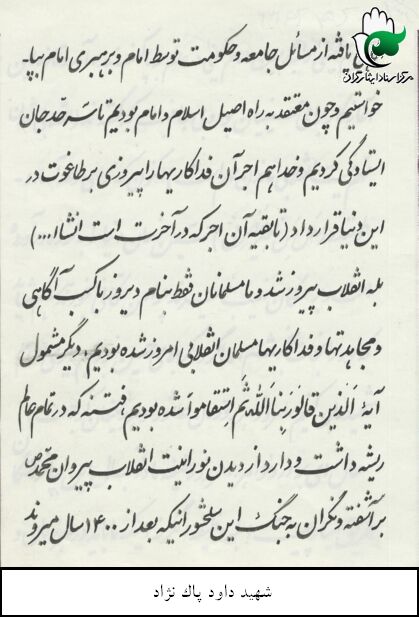 یافته از مسائل جامعه و حکومت توسط امام و برهبری امام بپا-
خواستیم و چون معتقد به راه اصیل اسلام و امام بودیم تا سر حد جان
ایستادگی کردیم و خدا هم اجر آن فداکاریها را پیروزی بر طاغوت در
این دنیا قرار داد (تا بقیه آن اجر که در آخرت است انشاا...)
بله انقلاب پیروز شد و ما مسلمانان فقط بنام دیروز با کسب آگاهی
و مجاهدتها و فداکاریها مسلمان انقلابی امروز شده بودیم، دیگر مشمول
آیهٔ اَلَّذین قالُو رَبُنا اَللّه ثُم اِستَقاموا شده بودیم، فتنه که در تمام عالم
ریشه داشت و دارد از دیدن نورانیت انقلاب پیروان محمد ص
برآشفته و نگران به جنگ این سلحشورانیکه بعد از ۱۴۰۰ سال میروند
مرکز اسناد ایثارگران
شهید داود پاك نژاد